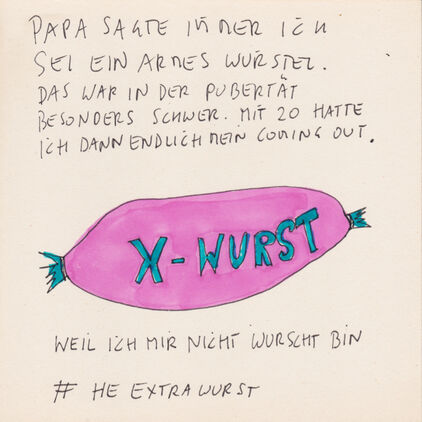 PAPA SAGTE IMMER ICH
SEI EIN ARMES WÜRSTEL.
DAS WAR IN DER PUBERTÄT
BESONDERS SCHWER. MIT 20 HATTE
ICH DANN ENDLICH MEIN COMING OUT.
X-WURST
WEIL ICH MIR NICHT WURSCHT BIN
# HE EXTRAWURST